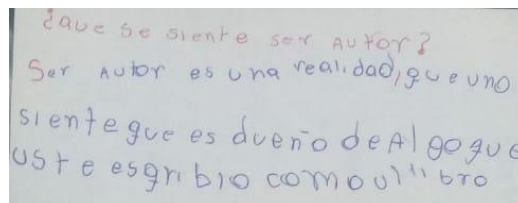 ¿Que se siente ser Autor?
Ser Autor es una realidad, que uno
siente que es dueño de Algo que
uste esgribio como u libro